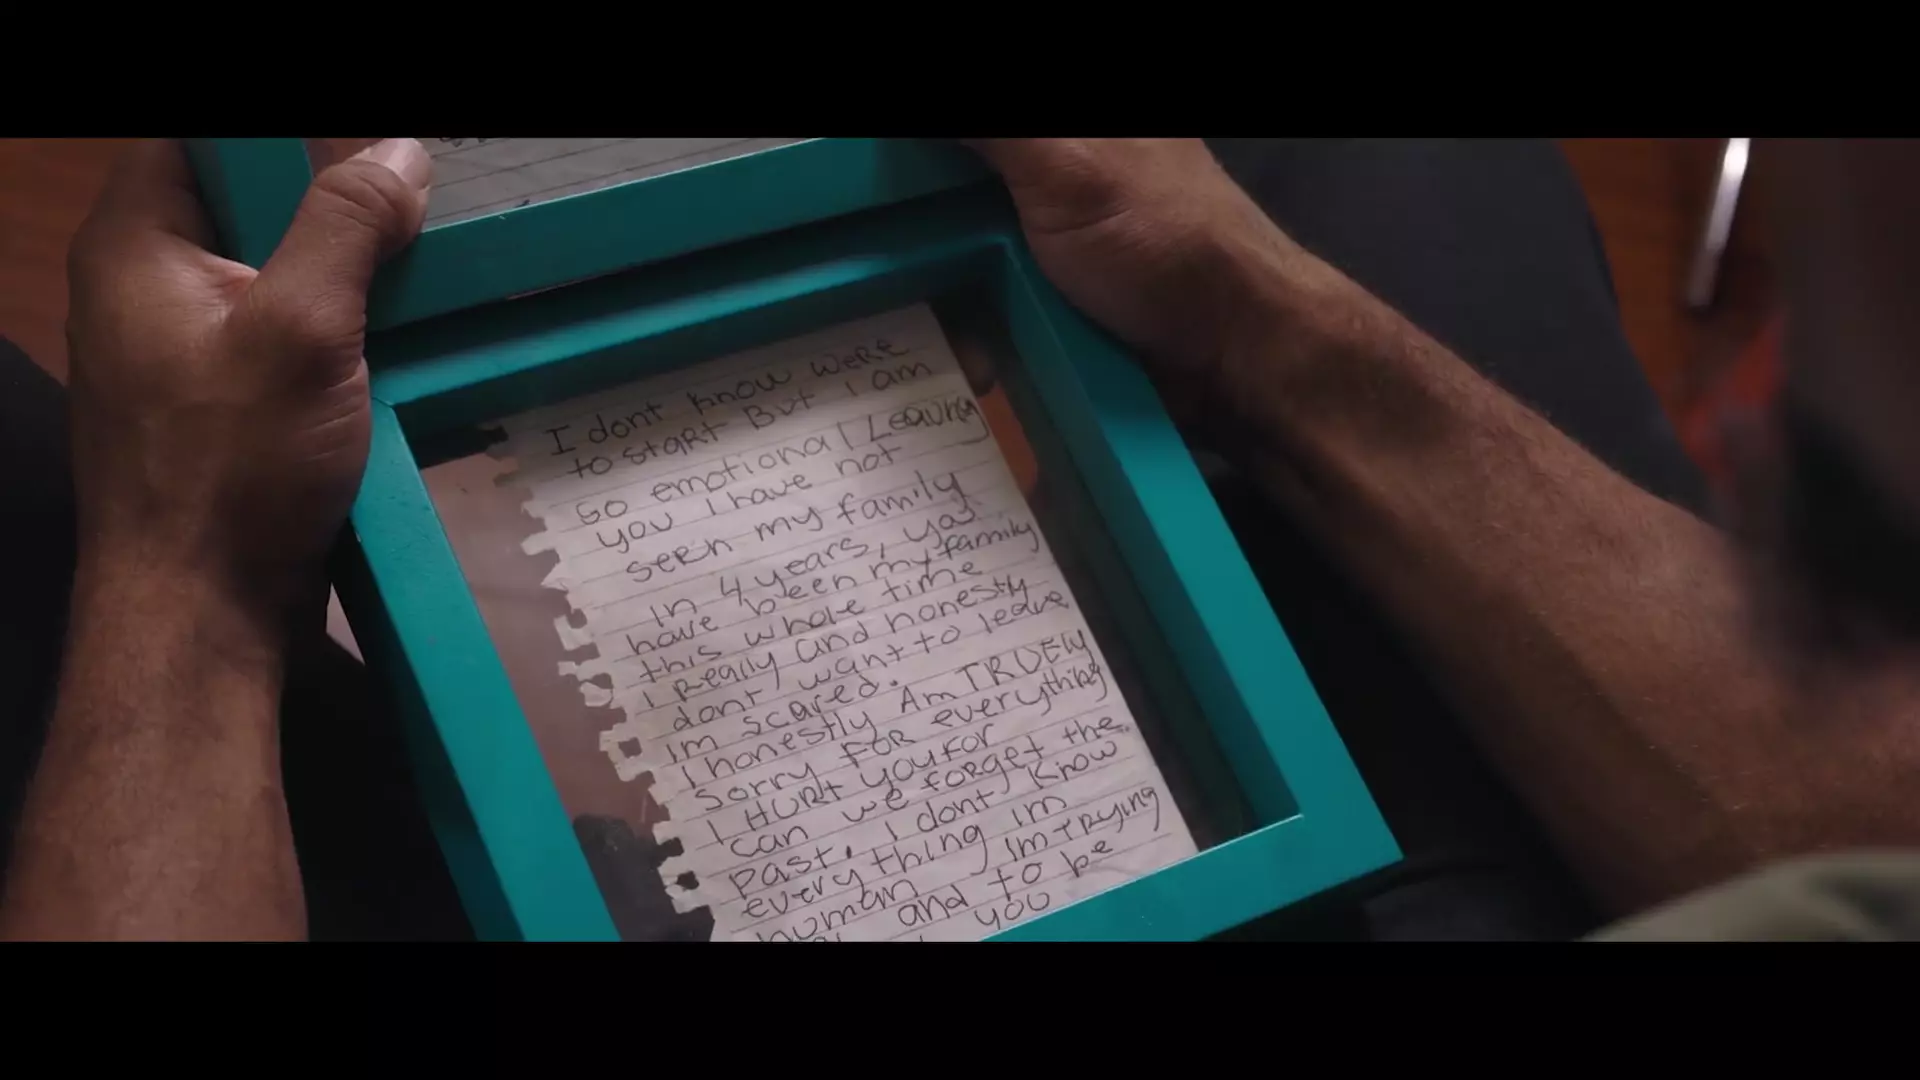 I dont know WERE
to staRt But I am
so emotional Leaving
you I have not
seen my family
in 4 years, you
have been my family
this whole time
I Really and honestly
dont want to leave
im scared.
I honestly Am TRUELY
sorry FOR everything
I HURt you FOR
can we foRget the
past. I dont know
everything im
human im tRying
and to be
you